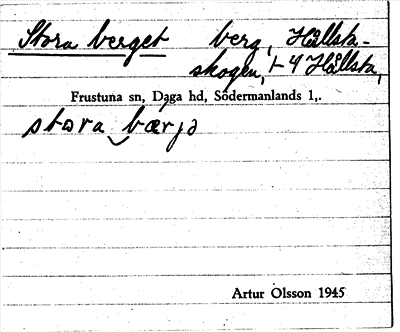 Stora berget berg, Hållsta-
skogen, t 4 Hållsta,
Frustuna sn, Daga hd, Södermanlands l,.
stora‿bærjə
Artur Olsson 1945